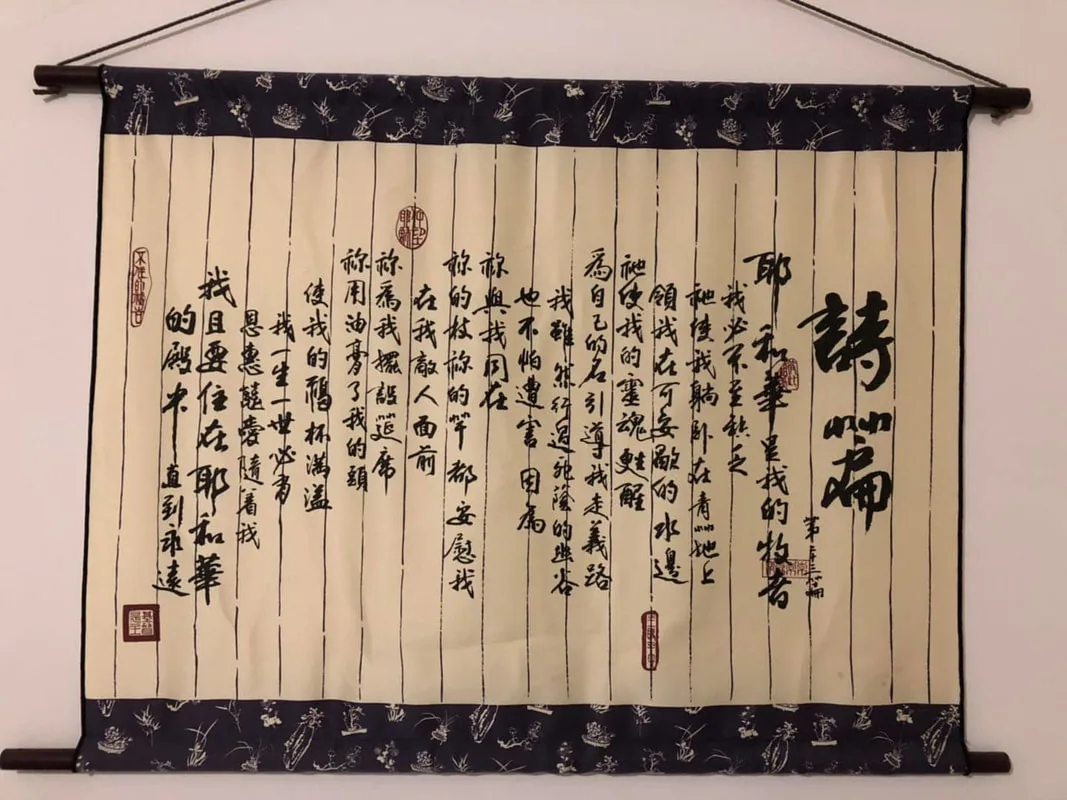 詩篇
第二十三篇
耶和華是我的牧者
我必不至缺乏
祂使我躺卧在青草地上
領我在可安歇的水邊
祂使我的靈魂甦醒
為自己的名引導我走義路
我雖然行過死蔭的幽谷
也不怕遭害 因為
祢與我同在
祢的杖祢的竿 都安慰我
在我敵人面前
祢為我擺設筵席
祢用油膏了我的頭
使我的福杯滿溢
我一生一世必有
恩惠慈愛隨着我
我且要住在耶和華
的殿中 直到永遠